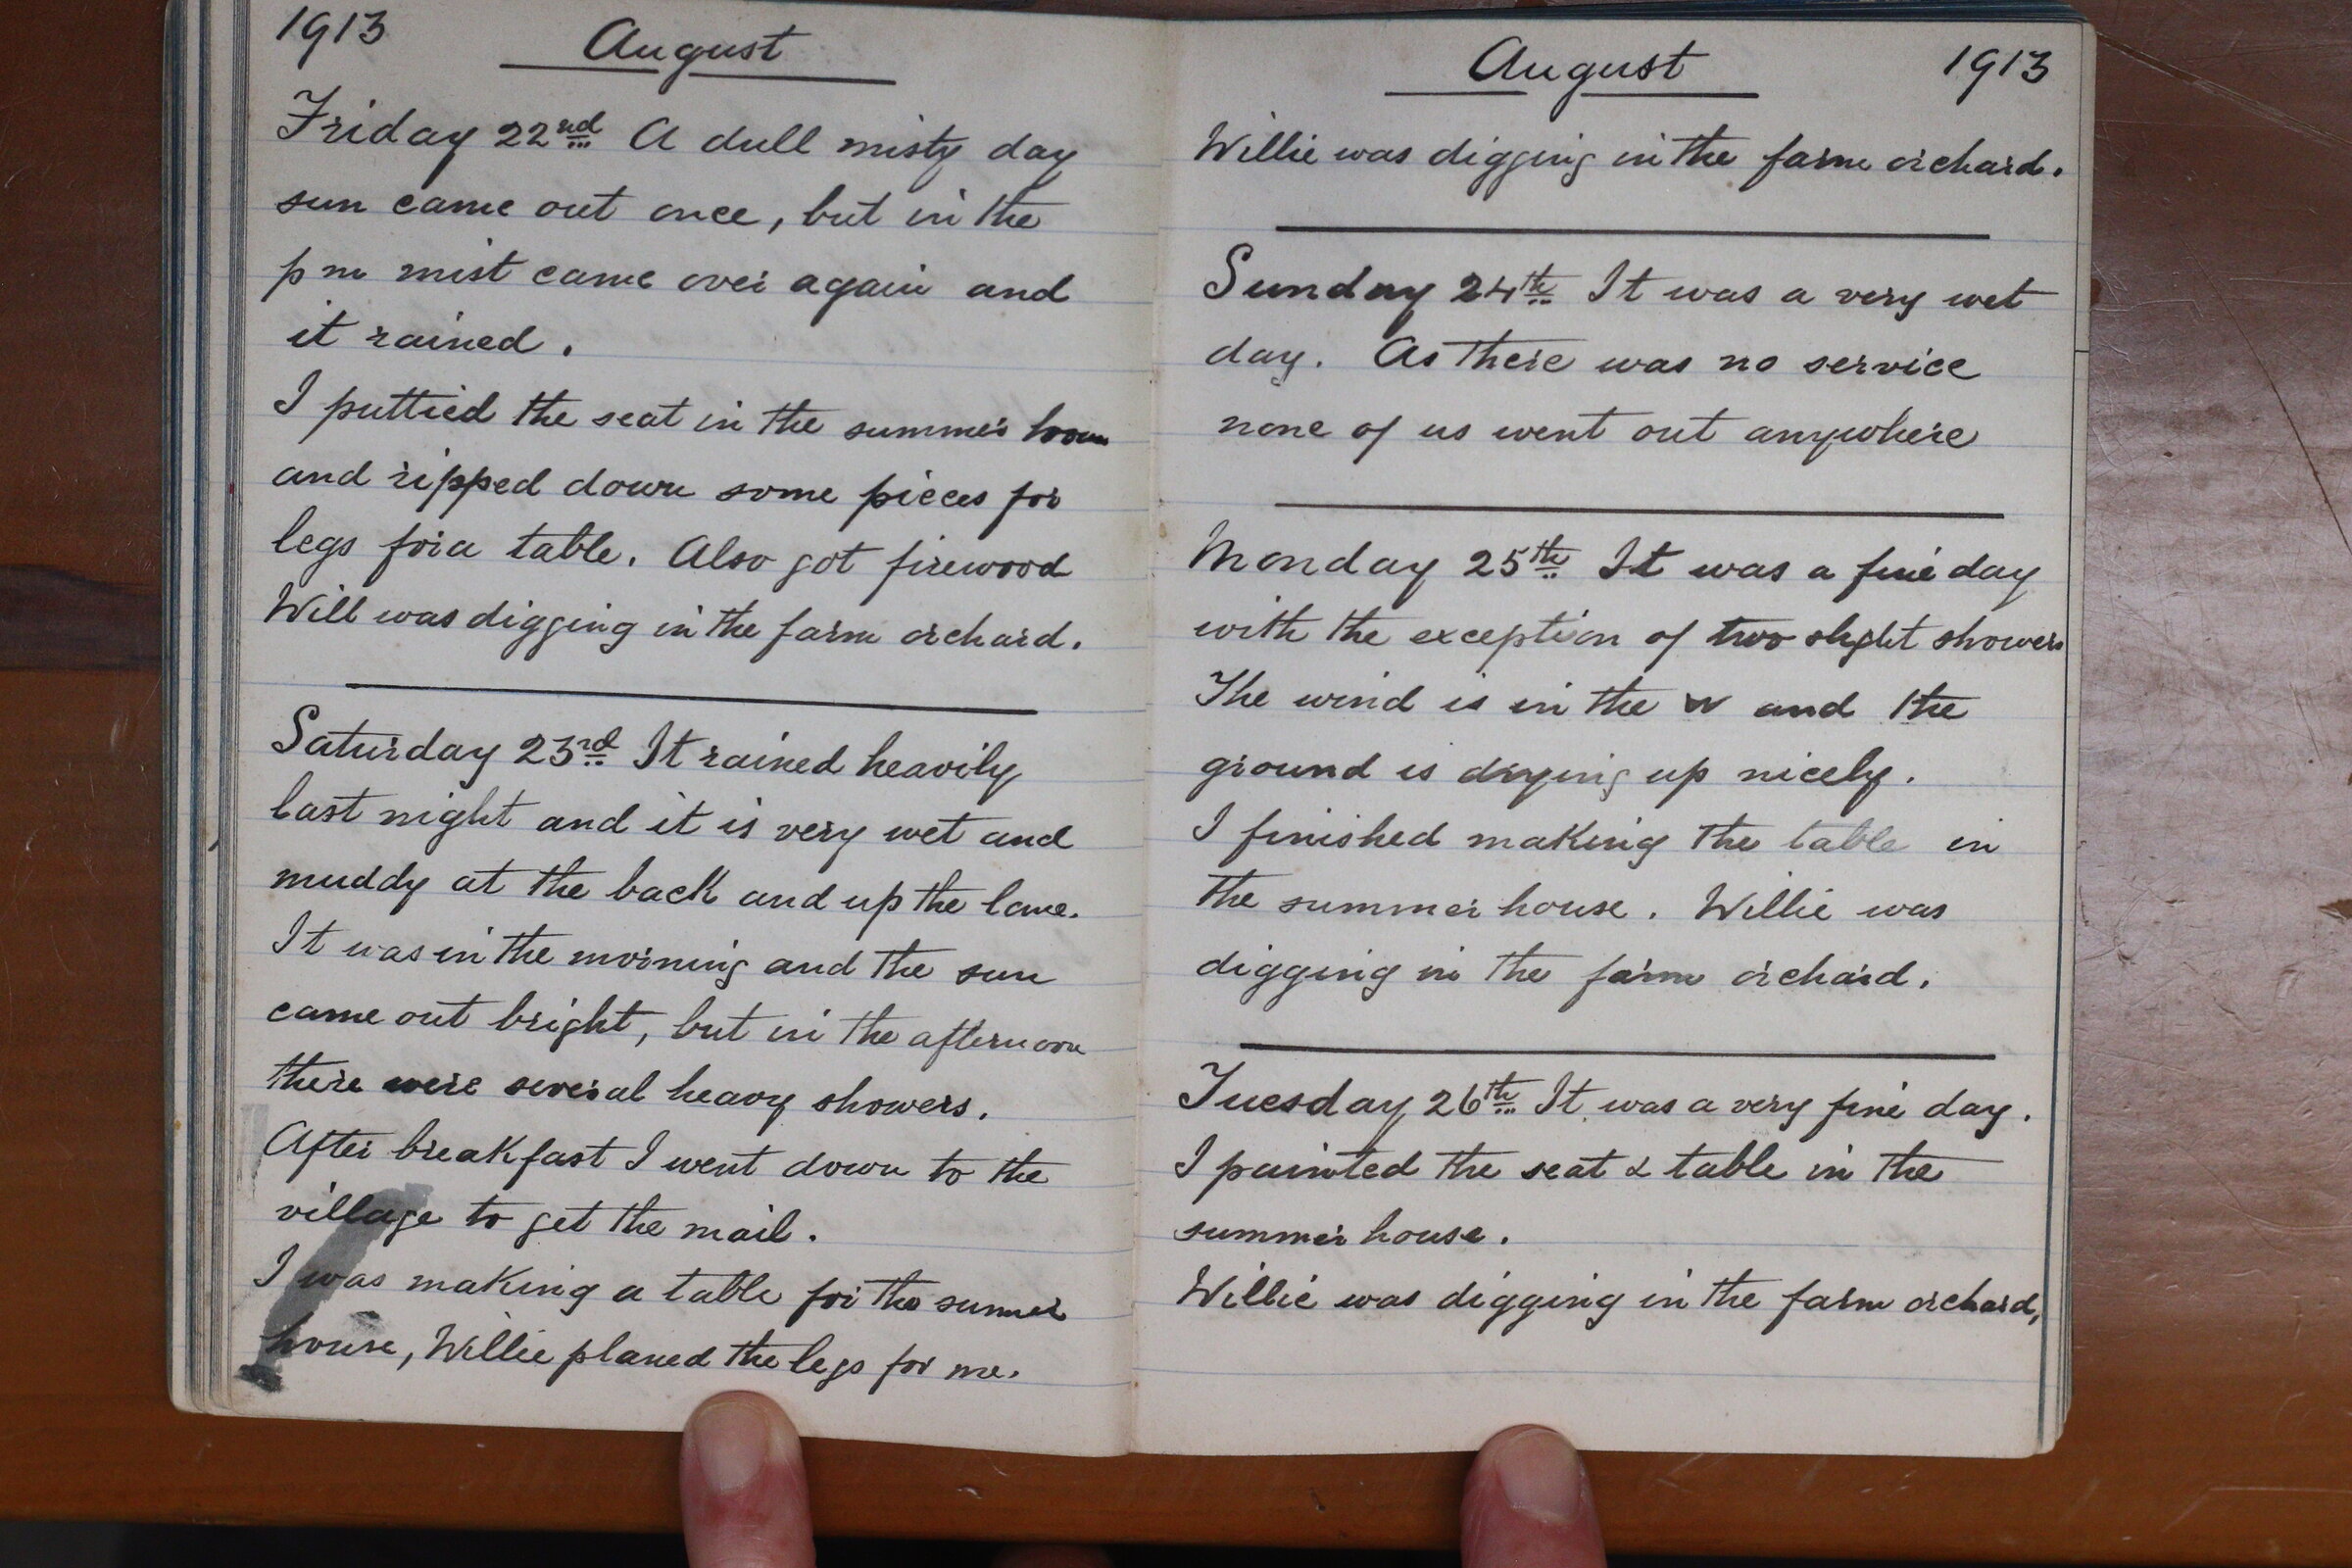 1913 August
Friday 22nd A dull misty day
sun came out once, but in the
pm mist came over again and
it rained.
I puttied the seat in the summer
and ripped down some pieces for
legs for a table. Also got firewood
Will was digging in the farm orchard.
Saturday 23rd It rained heavily
last night and it is very wet and
muddy at the back and up the lane.
It was in the morning and the sun
came out bright, but in the afternoon
there were several heavy showers.
After breakfast I went down to the
village to get the mail.
I was making a table for the summer
house, Willie planed the legs for me.
August 1913
Willie was digging in the farm orchard.
Sunday 24th It was a very wet
day. As there was no service
none of us went out anywhere
Monday 25th It was a fine day
with the exception of two slight showers
The wind is in the W and the
ground is drying up nicely.
I finished making the table in
the summer house. Willie was
digging in the farm orchard.
Tuesday 26th It was a very fine day.
I painted the seat & table in the
summer house.
Willie was digging in the farm orchard,